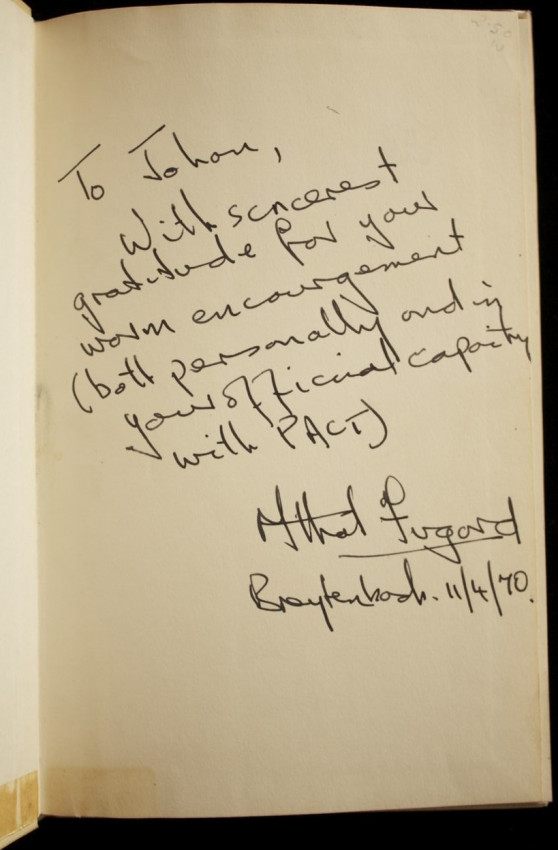 To Johan,
With sincerest
gratitude for your
warm encourgement
(both personally and in
your official capacity
with PACT)
Athol Fugard
Breytenbach. 11/4/70.